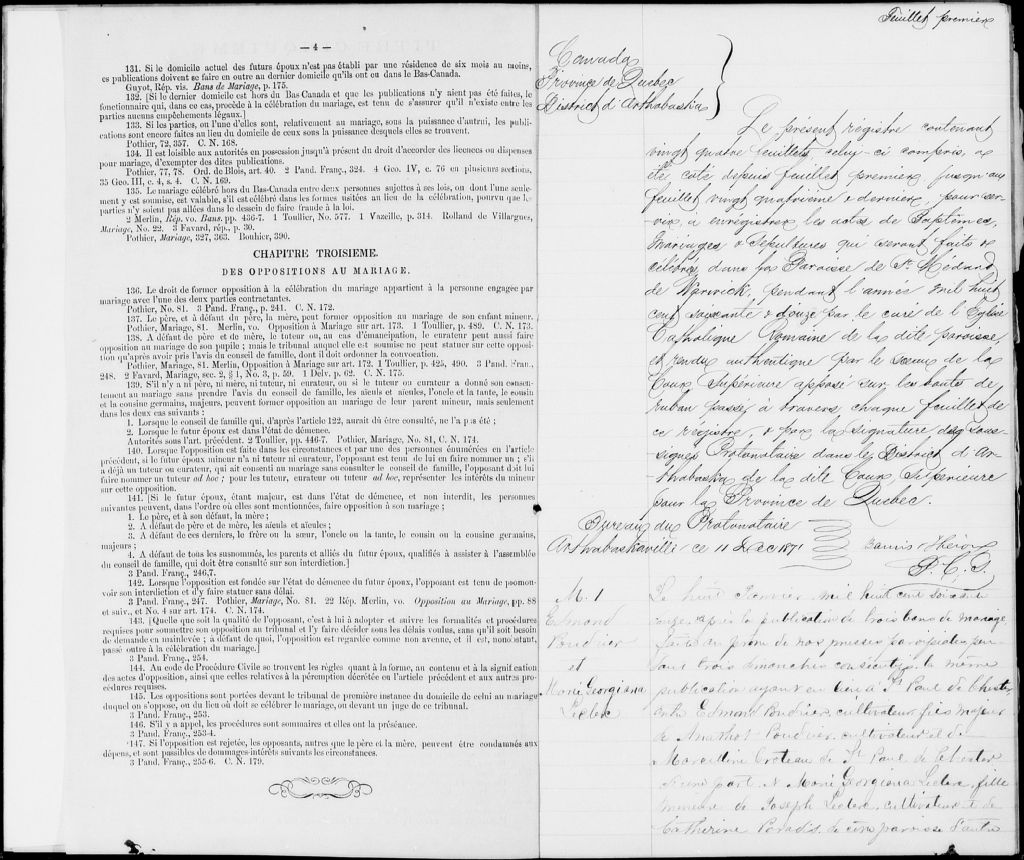 — 4 —
131. Si le domicile actuel des futurs époux n'est pas établi par une résidence de six mois au moins,
ces publications doivent se faire en outre au dernier domicile qu'ils ont eu dans le Bas-Canada.
Guyot, Rép. vis. Bans de Mariage, p. 175.
132. [Si le dernier domicile est hors du Bas-Canada et que les publications n'y aient pas été faites, le
fonctionnaire qui, dans ce cas, procède à la célébration du mariage, est tenu de s'assurer qu'il n'existe entre les
parties aucuns empêchements légaux.]
133. Si les parties, ou l'une d'elles sont, relativement au mariage, sous la puissance d'autrui, les publi-
cations sont encore faites au lieu du domicile de ceux sous la puissance desquels elles se trouvent.
Pothier, 72, 357. C. N. 168.
134. Il est loisible aux autorités en possession jusqu'à présent du droit d'accorder des licences ou dispenses
pour mariage, d'exempter des dites publications.
Pothier, 77, 78. Ord. de Blois, art. 40. 2 Pand. Franç., 324. 4 Geo. IV, c. 76 en plusieurs sections.
35 Geo. III, c. 4, s. 4. C. N. 169.
135. Le mariage célébré hors du Bas-Canada entre deux personnes sujettes à ses lois, ou dont l'une seule-
ment y est soumise, est valable, s'il est célébré dans les formes usitées au lieu de la célébration, pourvu que les
parties n'y soient pas allées dans le dessein de faire fraude à la loi.
2 Merlin, Rép. vo. Bans, pp. 436-7. 1 Toullier, No. 577. 1 Vazeille, p. 314. Rolland de Villargues,
Mariage, No. 22. 3 Favard, rép., p. 30.
Pothier, Mariage, 327, 363. Bouhier, 390.
CHAPITRE TROISIEME.
DES OPPOSITIONS AU MARIAGE.
136. Le droit de former opposition à la célébration du mariage appartient à la personne engagée par
mariage avec l'une des deux parties contractantes.
Pothier, No. 81. 3 Pand. Franç., p. 241. C. N. 172.
137. Le père, et à défaut du père, la mère, peut former opposition au mariage de son enfant mineur.
Pothier, Mariage, 81. Merlin, vo. Opposition à Mariage sur art. 173. 1 Toullier, p. 489. C. N. 173.
138. A défaut de père et de mère, le tuteur ou, au cas d'émancipation, le curateur peut aussi faire
opposition au mariage de son pupille; mais le tribunal auquel elle est soumise ne peut statuer sur cette opposi-
tion qu'après avoir pris l'avis du conseil de famille, dont il doit ordonner la convocation.
Pothier, Mariage, 81. Merlin, Opposition à Mariage sur art. 172. 1 Toullier, p. 425, 490. 3 Pand. Fran.,
248. 2 Favard, Mariage, sec. 2, § 1, No. 3, p. 59. 1 Delv. p. 62. C. N. 175.
139. S'il n'y a ni père, ni mère, ni tuteur, ni curateur, ou si le tuteur ou curateur a donné son consen-
tement au mariage sans prendre l'avis du conseil de famille, les aïeuls et aïeules, l'oncle et la tante, le cousin
et la cousine germains, majeurs, peuvent former opposition au mariage de leur parent mineur, mais seulement
dans les deux cas suivants:
1. Lorsque le conseil de famille qui, d'après l'article 122, aurait dû être consulté, ne l'a pas été;
2. Lorsque le futur époux est dans l'état de démence.
Autorités sous l'art. précédent. 2 Toullier, pp. 446-7. Pothier, Mariage, No. 81, C. N. 174.
140. Lorsque l'opposition est faite dans les circonstances et par une des personnes énumérées en l'article
précédent, si le futur époux mineur n'a ni tuteur ni curateur, l'opposant est tenu de lui en faire nommer un; s'il
a déjà un tuteur ou curateur, qui ait consenti au mariage sans consulter le conseil de famille, l'opposant doit lui
faire nommer un tuteur ad hoc; pour les tuteur, curateur ou tuteur ad hoc, représenter les intérêts du mineur
sur cette opposition.
141. [Si le futur époux, étant majeur, est dans l'état de démence, et non interdit, les personnes
suivantes peuvent, dans l'ordre où elles sont mentionnées, faire opposition à son mariage;
1. Le père, et à son défaut, la mère;
2. A défaut de père et de mère, les aïeuls et aïeules;
3. A défaut de ces derniers, le frère ou la sœur, l'oncle ou la tante, le cousin ou la cousine germains,
majeurs;
4. A défaut de tous les susnommés, les parents et alliés du futur époux, qualifiés à assister à l'assemblée
du conseil de famille, qui doit être consulté sur son interdiction.]
3 Pand. Franç., 246,7.
142. Lorsque l'opposition est fondée sur l'état de démence du futur époux, l'opposant est tenu de promou-
voir son interdiction et d'y faire statuer sans délai.
3 Pand. Franç., 247. Pothier, Mariage, No. 81. 22 Rép. Merlin, vo. Opposition au Mariage, pp. 88
et suiv., et No. 4 sur art. 174. C. N. 174.
143. [Quelle que soit la qualité de l'opposant, c'est à lui à adopter et suivre les formalités et procédures
requises pour soumettre son opposition au tribunal et l'y faire décider sous les délais voulus, sans qu'il soit besoin
de demande en mainlevée; à défaut de quoi, l'opposition est regardée comme non avenue, et il est, nonobstant,
passé outre à la célébration du mariage.]
3 Pand. Franç., 254.
144. Au code de Procédure Civile se trouvent les règles quant à la forme, au contenu et à la signification
des actes d'opposition, ainsi que celles relatives à la péremption décrétée en l'article précédent et aux autres pro-
cédures requises.
145. Les oppositions sont portées devant le tribunal de première instance du domicile de celui au mariage
duquel on s'oppose, ou du lieu où doit se célébrer le mariage, ou devant un juge de ce tribunal.
3 Pand. Franç., 253.
146. S'il y a appel, les procédures sont sommaires et elles ont la préséance.
3 Pand. Franç., 253-4.
147. Si l'opposition est rejetée, les opposants, autres que le père et la mère, peuvent être condamnés aux
dépens, et sont passibles de dommages-intérêts suivant les circonstances.
3 Pand. Franç., 255-6. C. N. 179.
Feuillet premier
Canada
Province de Quebec
District d'Arthabaska
Le présent régistre contenant
vingt quatre feuillets celui-ci compris, a
été coté depuis feuillet premier jusqu'au
feuillet vingt quatrieme & dernier, pour ser-
vir à enregistrer les actes de Baptêmes,
Mariages & Sépultures qui seront faits &
célébrés dans la Paroisse de St. Médard
de Warwick, pendant l'année mil huit
cent soixante & douze par le curé de l'Eglise
Catholique Romaine de la dite paroisse,
et rendu authentique par le Sceau de la
Cour Supérieure apposé sur les bouts de
ruban passé à travers chaque feuillet de
ce régistre, & par la signature des sous-
signés Protonotaire dans le District d'Ar-
thabaska de la dite Cour Supérieure
pour la Province de Quebec.
Bureau du Protonotaire
Arthabaskaville ce 11 Dec 1871
P. C. S.
M. 1
Edmond
Poudrier
et
Marie Georgiana
Leclerc
Le huit Janvier mil huit cent soixante
douze, après la publication de trois bans de mariage
faite au prône de nos messes paroissiales pen-
dant trois dimanches consécutifs, la même
publication ayant eu lieu à St Paul de Chester
entre Edmond Poudrier, cultivateur, fils majeur
de Poudrier cultivateur et de
Croteau de St Paul de Chester
d'une part, & Marie Georgiana Leclerc, fille
mineure de Joseph Leclerc, cultivateur et de
Catherine Paradis de cette paroisse d'autre